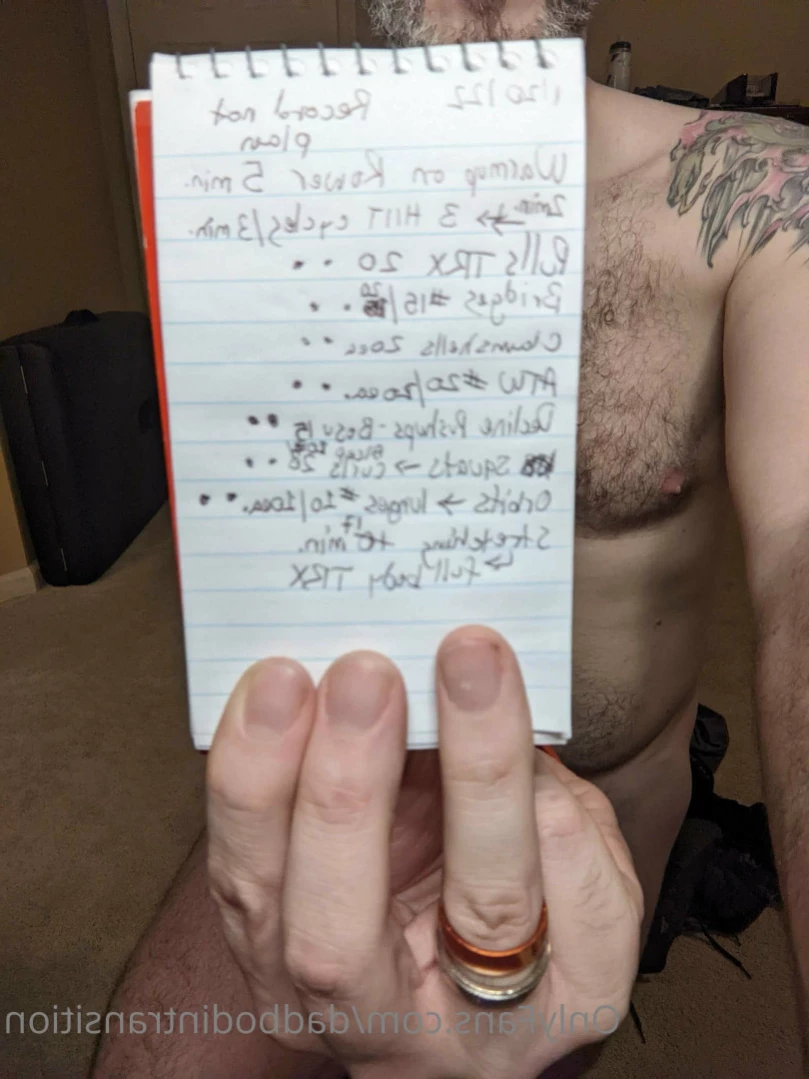 1/20/22 Record not
plan
Warmup on Rower 5 min.
2min. → 3 HIIT cycles/3 min.
Pulls TRX 20 • •
Bridges #15/20 • •
Clamshells 20ea • •
ATW #20/20ea. • •
Decline Pushups - Bosu 15 • •
Squats → curls 20 • •
Orbits → lunges #10/10ea. • •
Stretching 17 min.
↳ full body TRX
OnlyFans.com/dadbodintransition